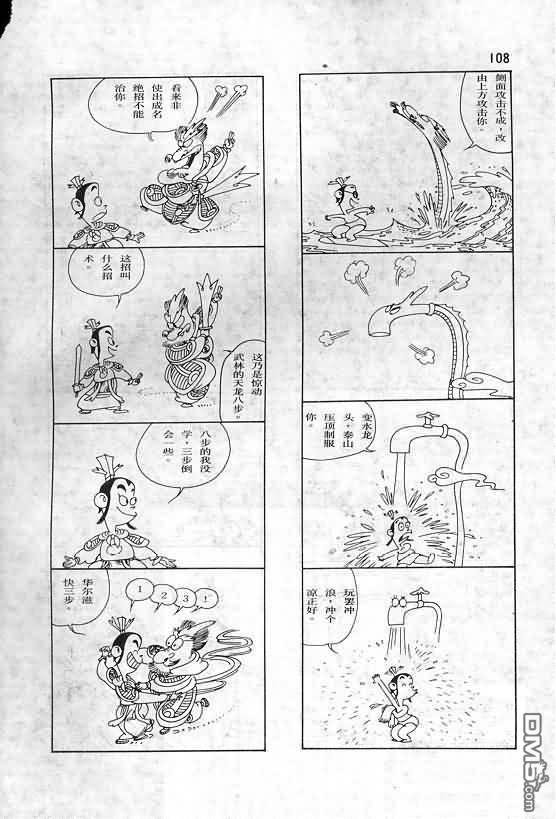 108
侧面攻击不成，改
由上方攻击你。
变水龙
头，泰山
压顶制服
你。
玩罢冲
浪，冲个
凉正好。
看来非
使出成名
绝招不能
治你。
这招叫
什么招
术。
这乃是惊动
武林的天龙八步。
八步的我没
学，三步倒
会一些。
1
2
3
！
华尔滋
快三步。
DM5.com